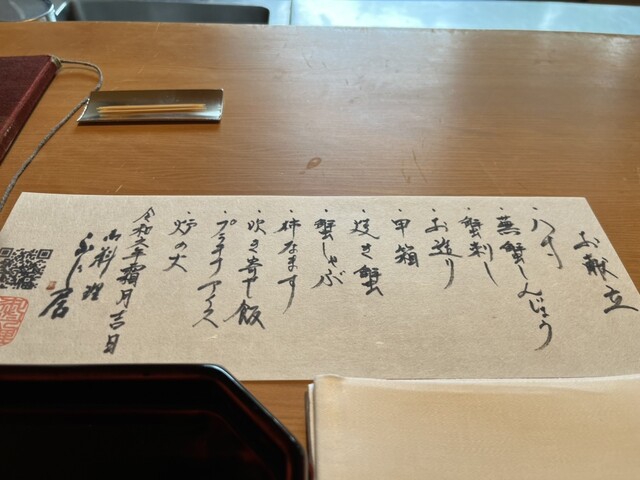 お献立
・八寸
・蕪蟹しんじょう
・蟹刺し
・お造り
・甲箱
・焼き蟹
・蟹しゃぶ
・柿なます
・吹き寄せ飯
・プラチナアイス
・炉の火
令和六年霜月吉日
御料理
居